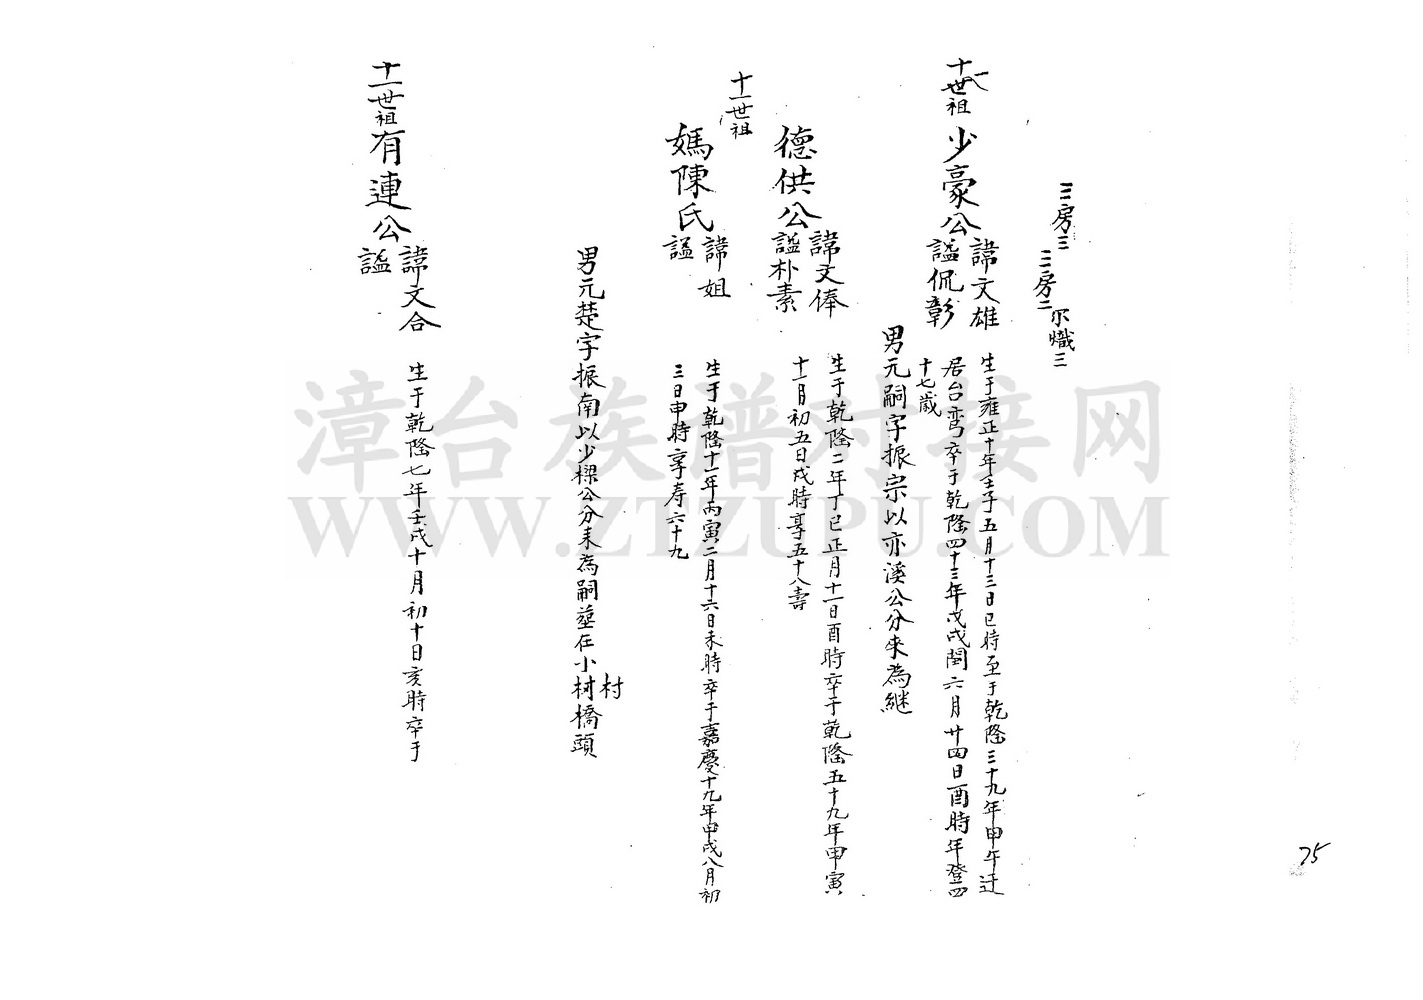 三房三
三房二
尔熾三
十一世祖
少豪公
諱文雄
謚侃彰
生于雍正十年壬子五月十三日巳時至于乾隆三十九年甲午迁
居台湾卒于乾隆四十三年戊戌閏六月廿四日酉時年登四
十七歲
男元嗣字振宗以亦溪公分來為継
十一世祖
德供公
諱文俸
謚朴素
生于乾隆二年丁巳正月十一日酉時卒于乾隆五十九年甲寅
十一月初五日戌時享五十八壽
媽陳氏
諱姐
謚
生于乾隆十一年丙寅二月十六日未時卒于嘉慶十九年甲戌八月初
三日申時享寿六十九
村
男元楚字振南以少樑公分来為嗣塟在小村橋頭
十一世祖
有連公
諱文合
謚
生于乾隆七年壬戌十月初十日亥時卒于
75
漳台族谱对接网
WWW.ZTZUPU.COM